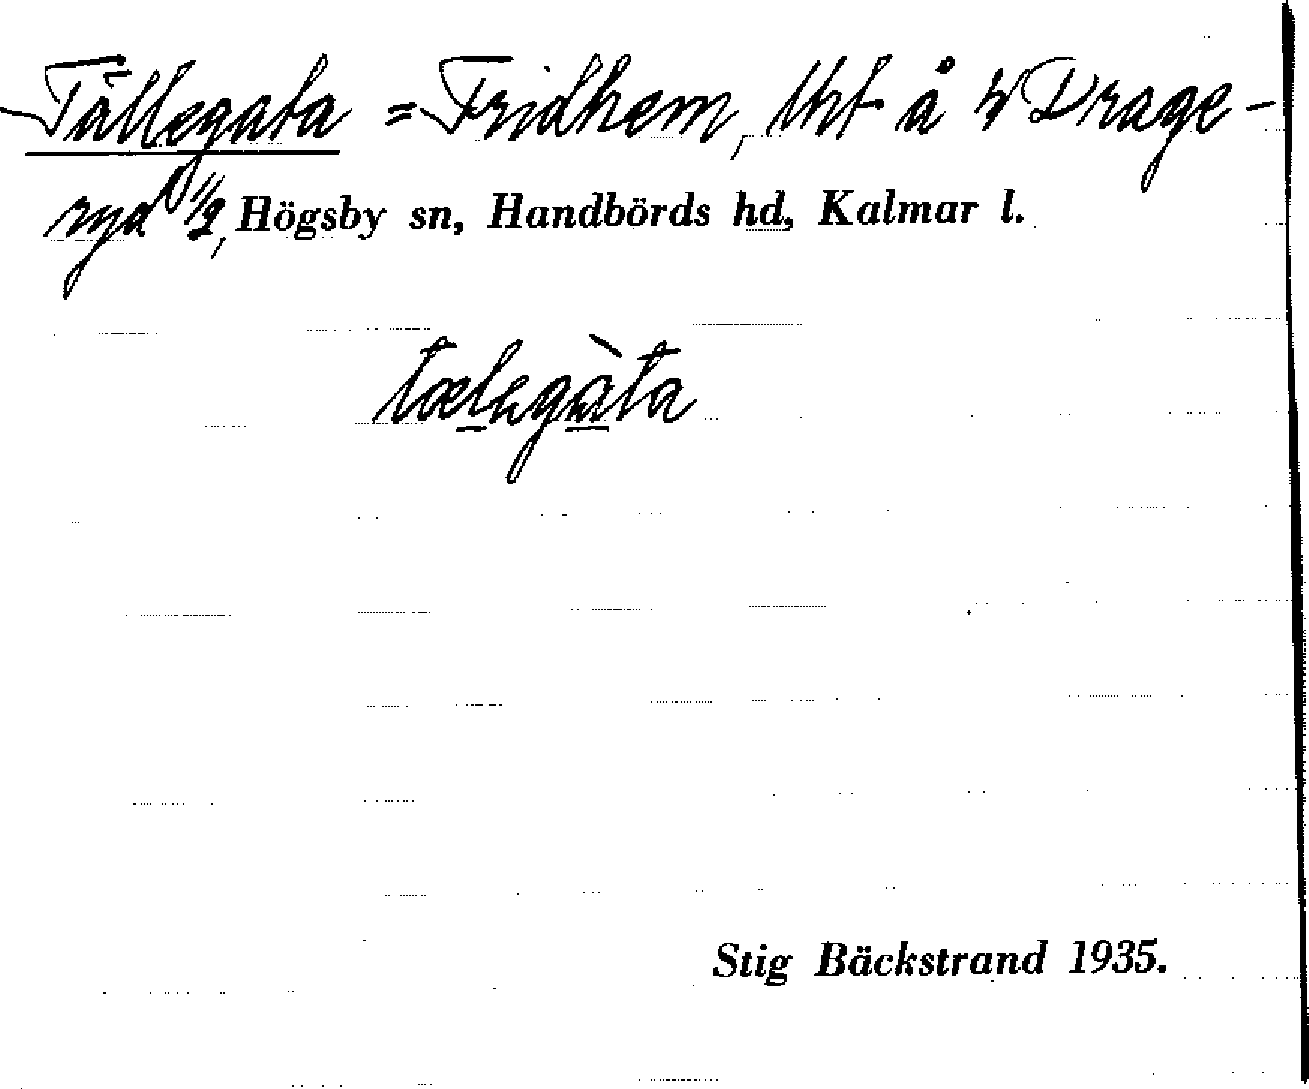 Tällegata = Fridhem, lht å Drage-
ryd 1/2, Högsby sn, Handbörds hd, Kalmar l.
tælegàta
Stig Bäckstrand 1935.